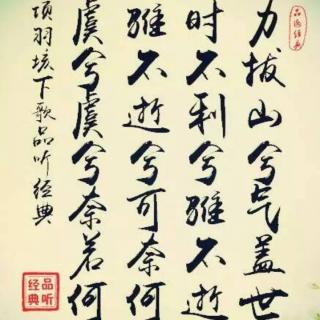 力拔山兮气盖世
时不利兮骓不逝
骓不逝兮可奈何
虞兮虞兮奈若何
项羽垓下歌品听经典
品听经典